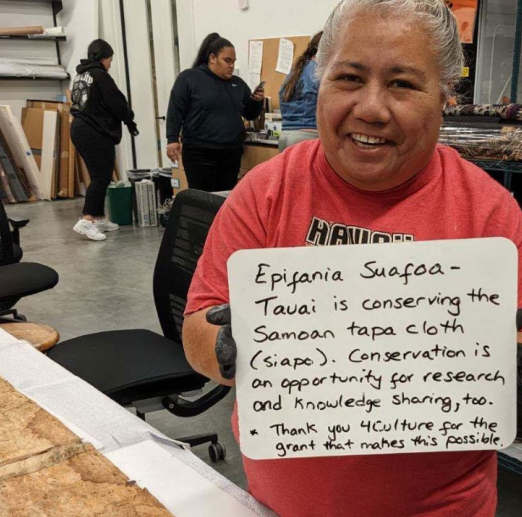 HAWAII
Epifania Suafoa-
Tauai is conserving the
Samoan tapa cloth
(siapo). Conservation is
an opportunity for research
and knowledge sharing, too.
* Thank you 4Culture for the
grant that makes this possible.